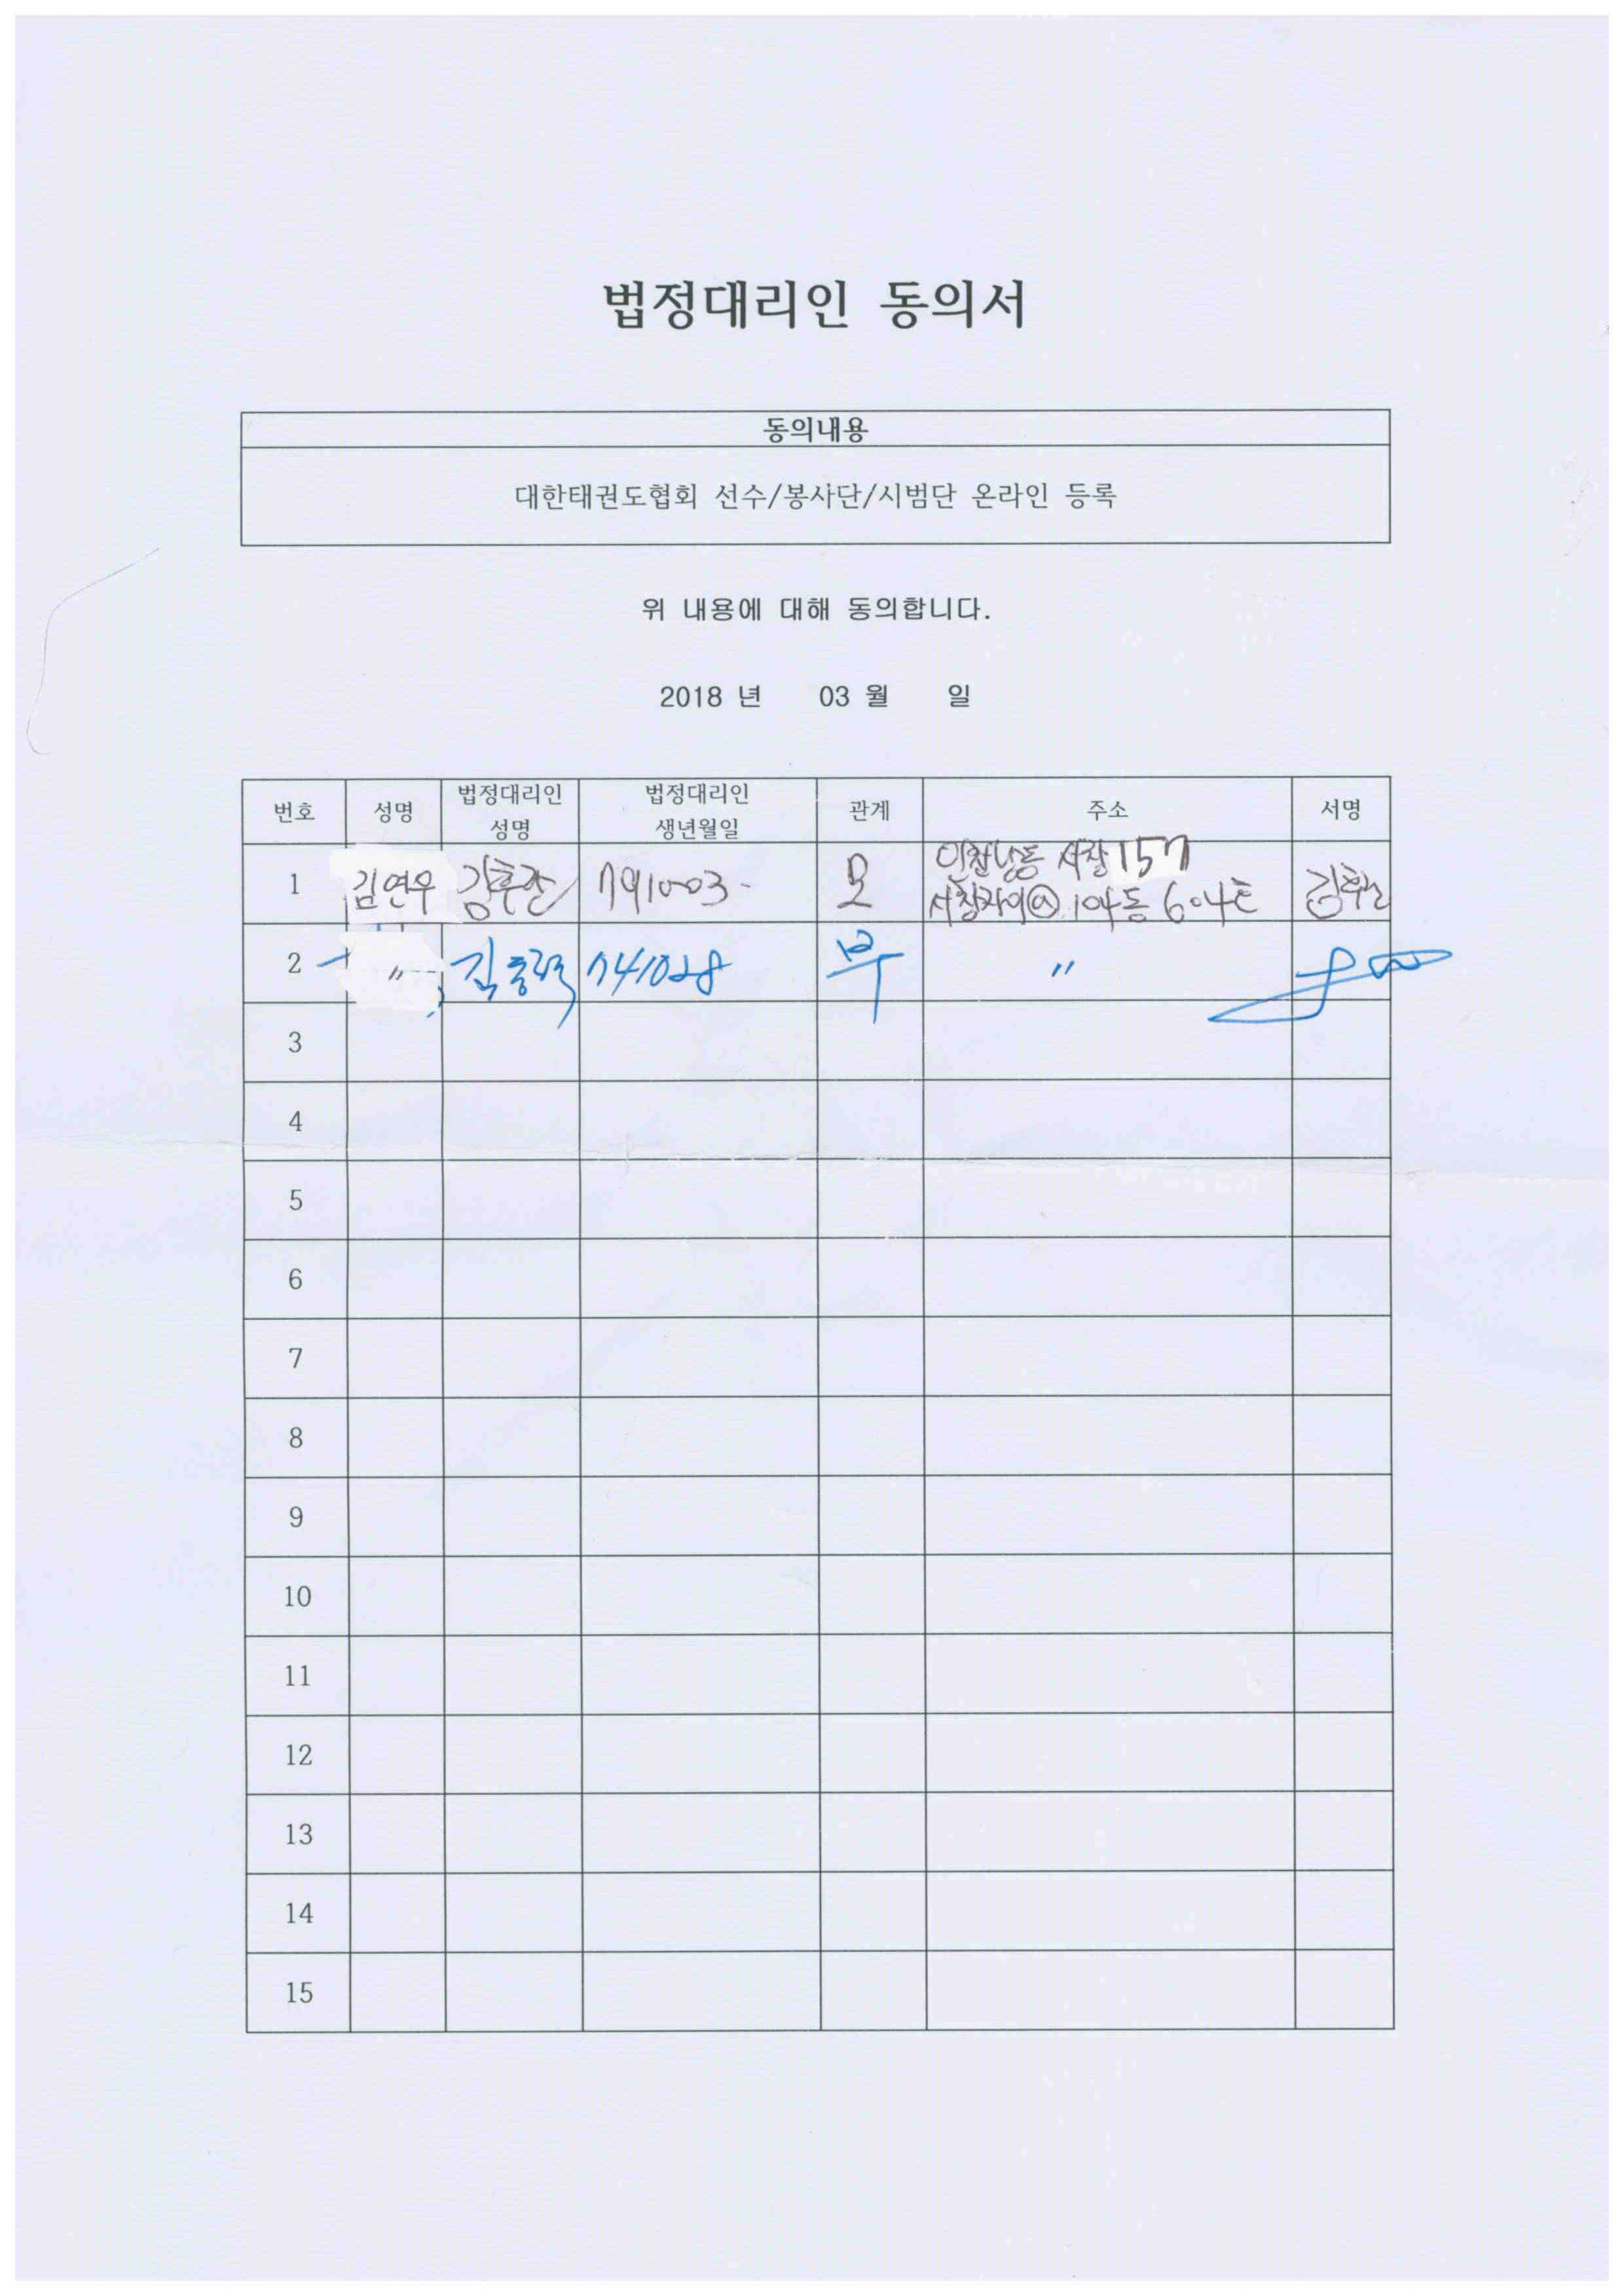 법정대리인 동의서
동의내용
대한태권도협회 선수/봉사단/시범단 온라인 등록
위 내용에 대해 동의합니다.
2018 년 03 월 일
번호 성명 법정대리인 성명 법정대리인 생년월일 관계 주소 서명
1 김연우 791003- 모 서창 157
서창자이 104동 604호
2 〃 741028 부 〃
3
4
5
6
7
8
9
10
11
12
13
14
15